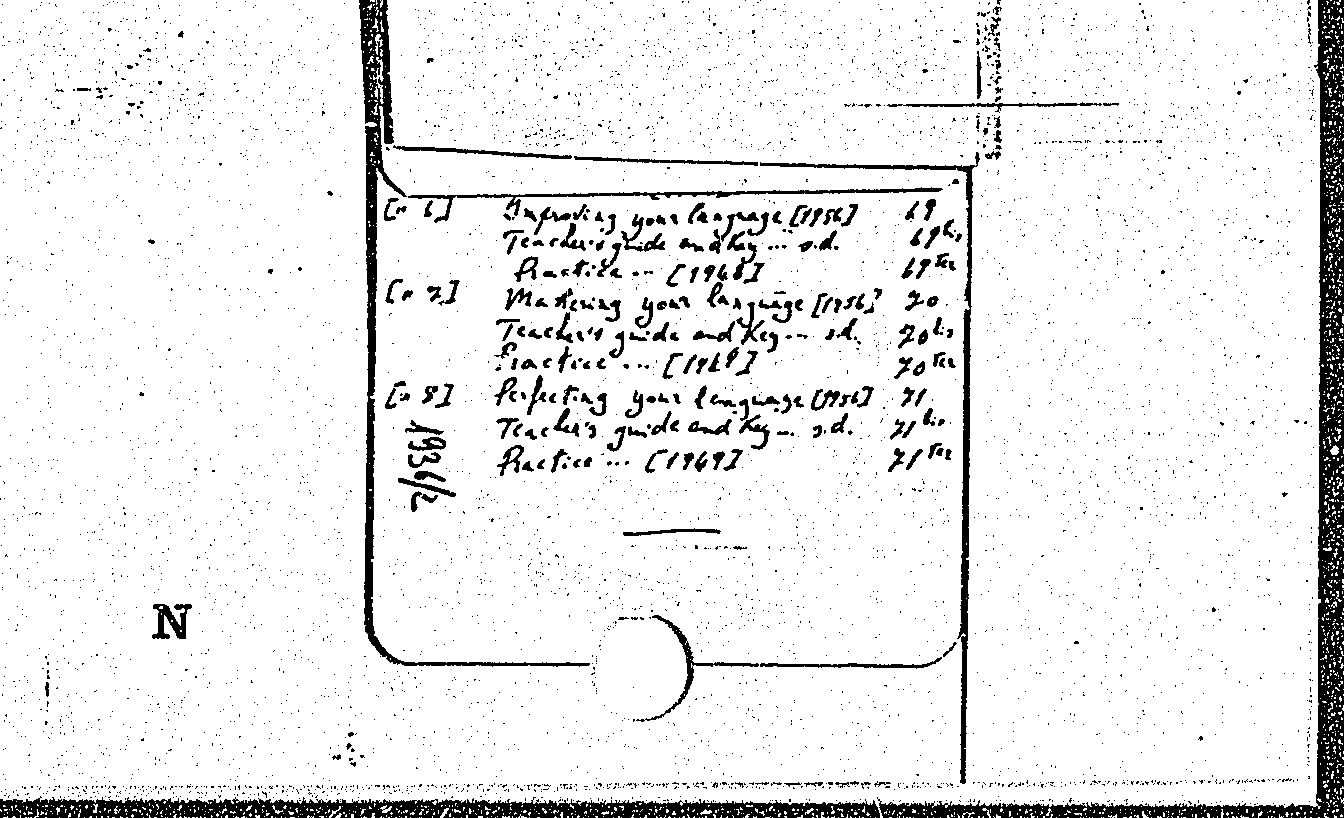 [n 6] Improving your language [1956] 69
Teacher's guide and Key ... s.d. 69 bis
Practice ... [1968] 69 ter
[n 7] Mastering your language [1956] 70
Teacher's guide and Key ... s.d. 70 bis
Practice ... [1969] 70 ter
[n 8] Perfecting your language [1956] 71
Teacher's guide and Key ... s.d. 71 bis
Practice ... [1969] 71 ter
1936/2
N